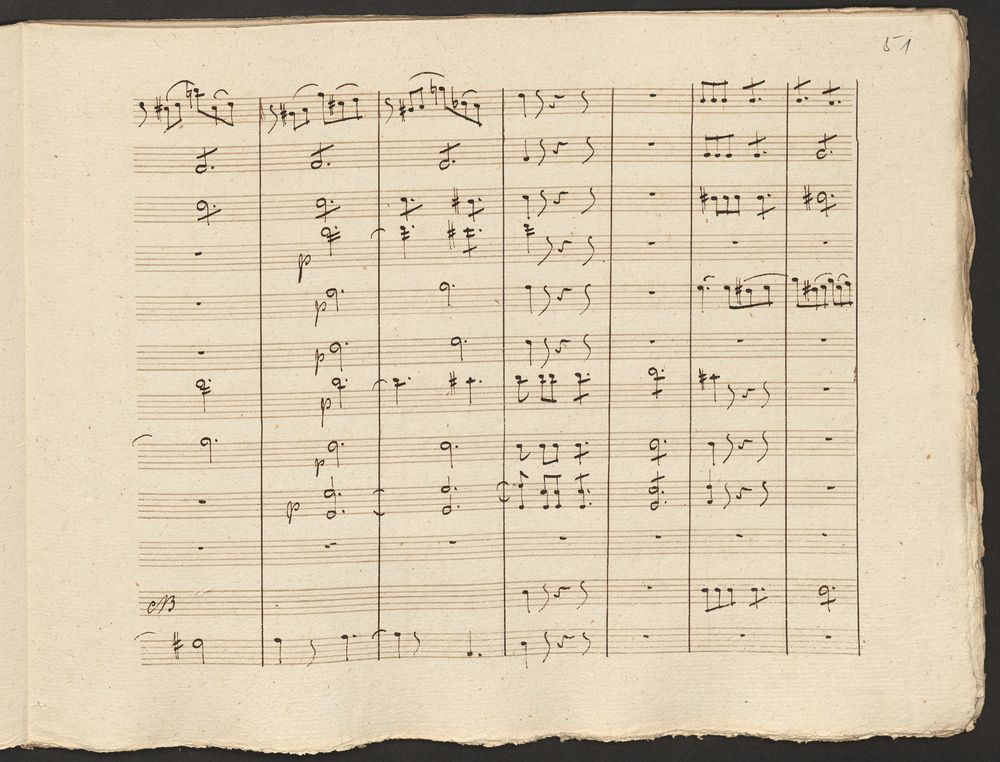 51
p
p
p
p
p
p
CB